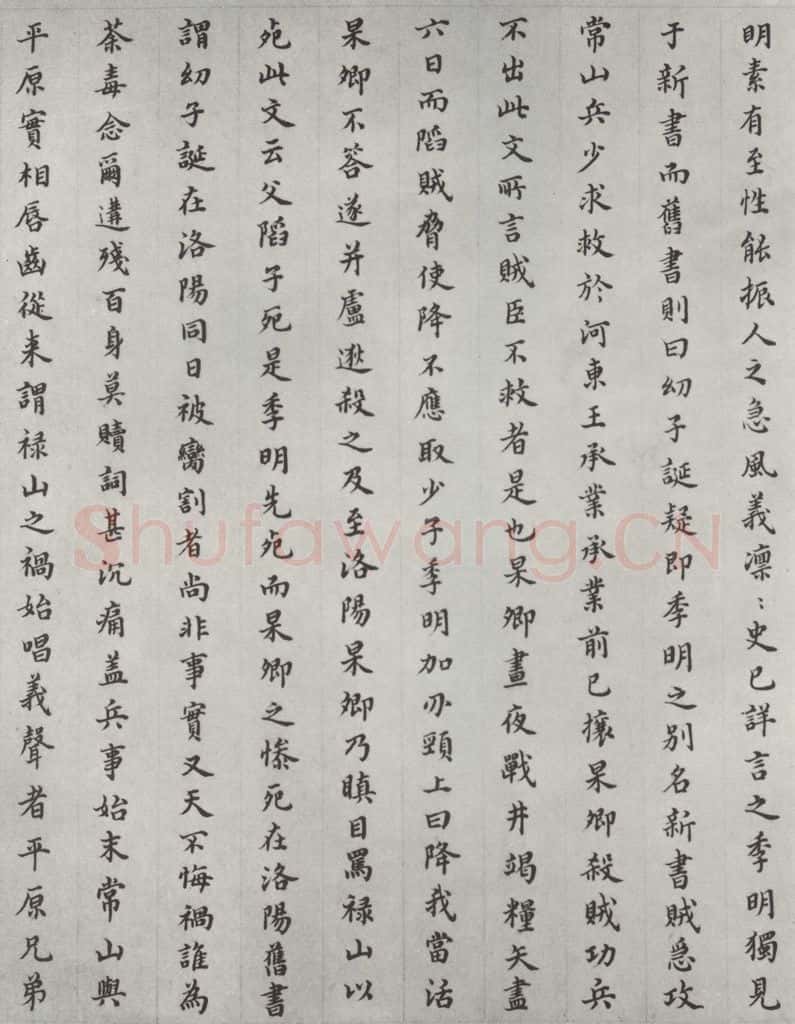 明素有至性能振人之急風義凛〻史已詳言之季明獨見
于新書而舊書則曰幼子誕疑即季明之别名新書賊急攻
常山兵少求救於河東王承業承業前已攘杲卿殺賊功兵
不出此文所言賊臣不救者是也杲卿晝夜戰井竭糧矢盡
六日而䧟賊脅使降不應取少子季明加刃頸上曰降我當活
杲卿不答遂并盧逖殺之及至洛陽杲卿乃瞋目罵禄山以
死此文云父䧟子死是季明先死而杲卿之惨死在洛陽舊書
謂幼子誕在洛陽同日被臠割者尚非事實又天不悔禍誰為
荼毒念爾遘殘百身莫贖詞甚沉痛盖兵事始末常山與
平原實相唇齒從来謂禄山之禍始唱義聲者平原兄弟
Shufawang.CN